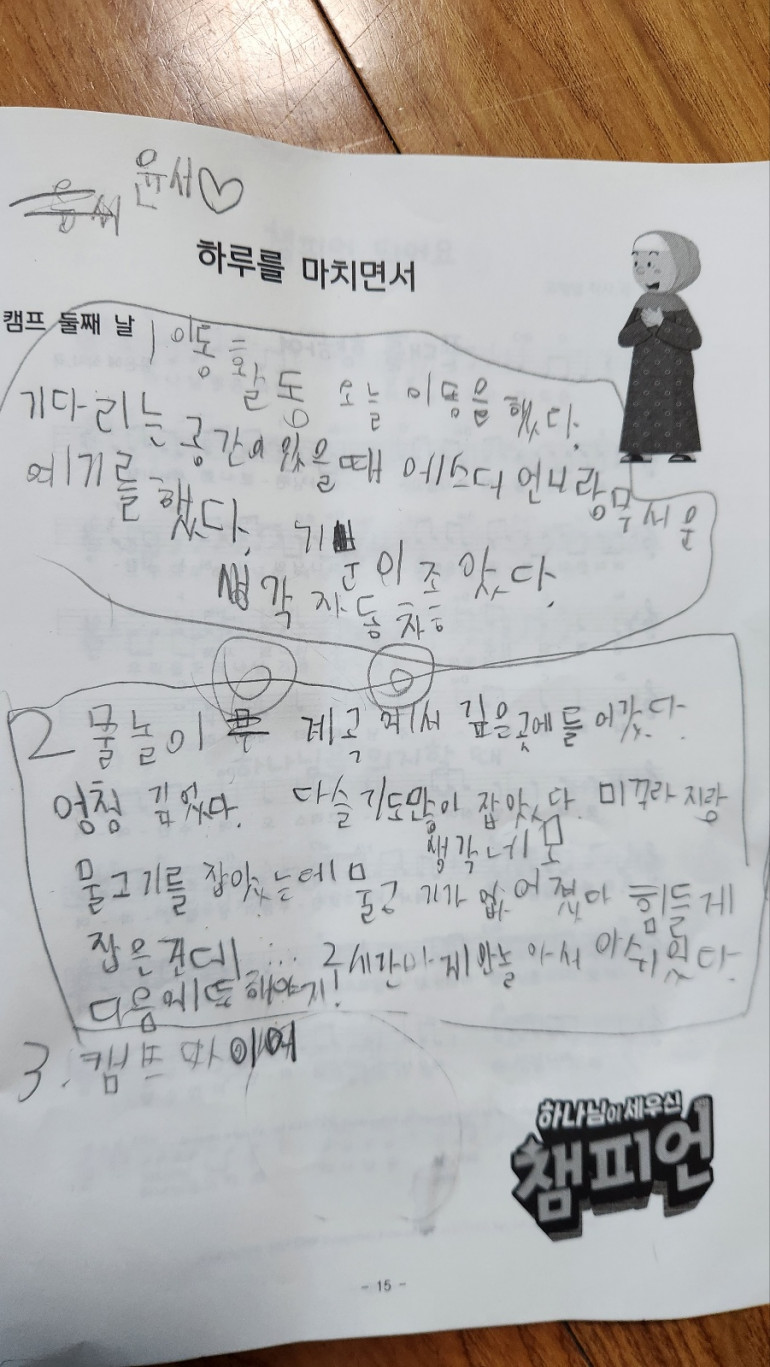 윤서♡
하루를 마치면서
캠프 둘째 날
1 이동 활동 오늘 이동을 했다.
기다리는 공간이 있을 때 에스더 언니랑 무서운
예기를 했다. 기분이 조앗다.
생각 자동차
2 물놀이 계곡에서 깊은곳에 들어갔다.
엉청 깊었다. 다슬기도 많이 잡앗다. 미꾸라지랑
생각 네모
물고기를 잡았는데 물고기가 없어졌다 힘들게
잡은건데... 2시간바께 안놀아서 아쉬웠다.
다음에 또 해야지!
3. 캠프 파이어
하나님이 세우신
챔피언
- 15 -